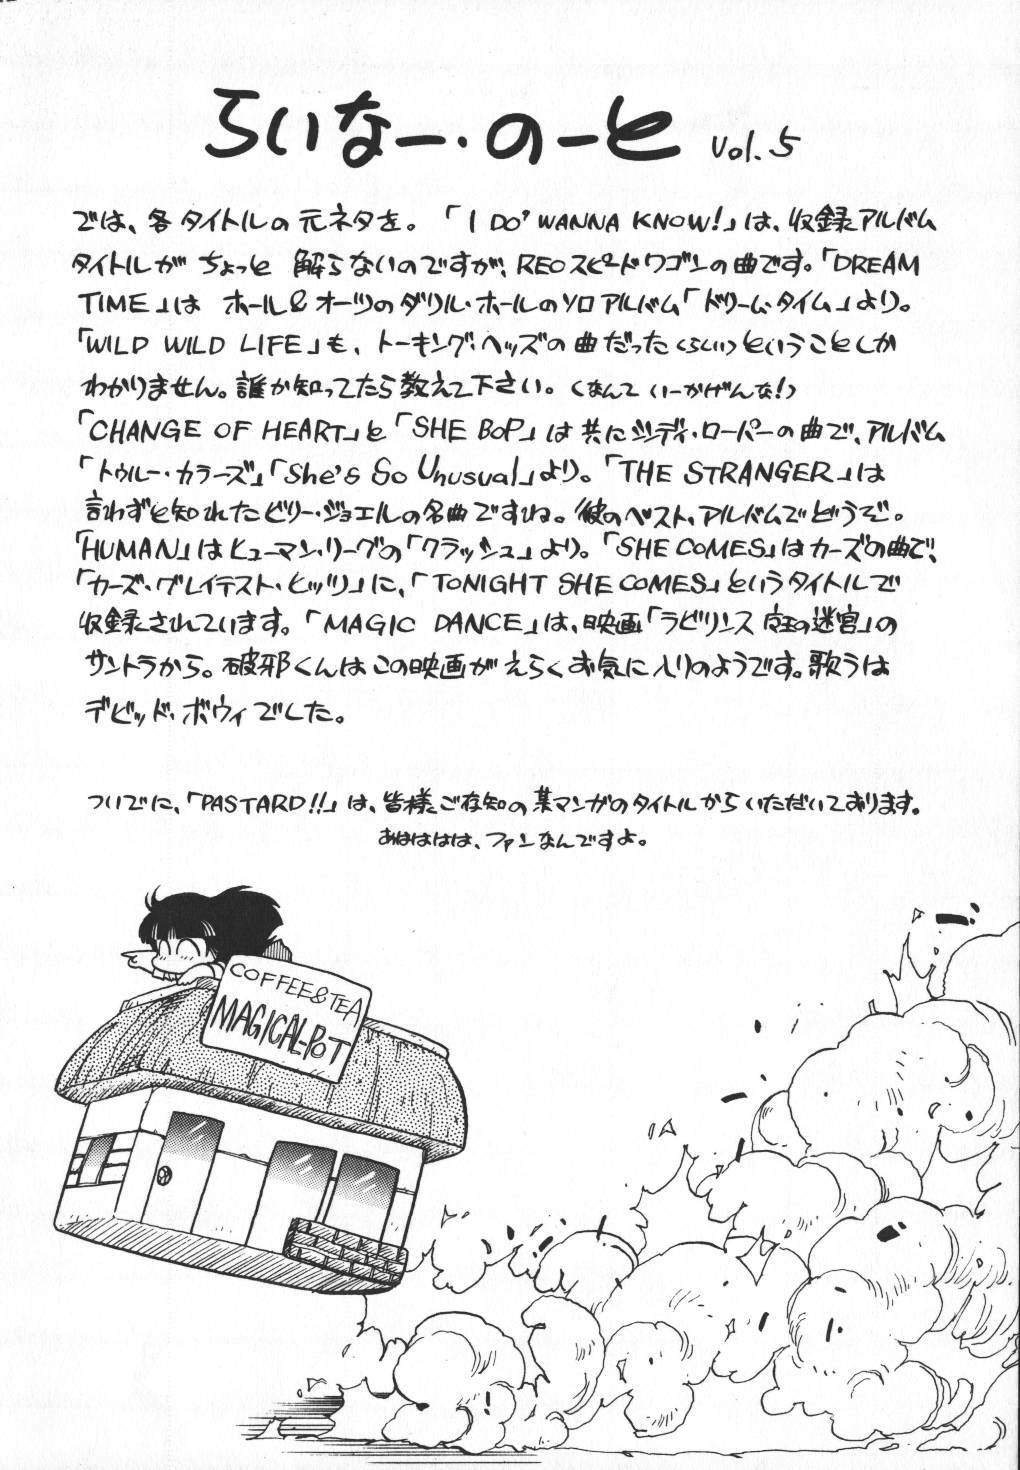 らいなー・のーと Vol.5
では、各タイトルの元ネタを。「I DO' WANNA KNOW!」は、収録アルバム
タイトルが ちょっと 解らないのですが、REOスピードワゴンの曲です。「DREAM
TIME」は ホール&オーツのダリル・ホールのソロアルバム「ドリーム・タイム」より。
「WILD WILD LIFE」も、トーキング・ヘッズの曲だった(らしい)ということしか
わかりません。誰か知ってたら教えて下さい。(なんて いーかげんな!)
「CHANGE OF HEART」と「SHE BOP」は共にシンディ・ローパーの曲で、アルバム
「トゥルー・カラーズ」「She's So Unusual」より。「THE STRANGER」は
言わずと知れたビリー・ジョエルの名曲ですね。彼のベスト・アルバムでどうぞ。
「HUMAN」はヒューマン・リーグの「クラッシュ」より。「SHE COMES」はカーズの曲で、
「カーズ・グレイテスト・ヒッツ」に、「TONIGHT SHE COMES」というタイトルで
収録されています。「MAGIC DANCE」は、映画「ラビリンス 魔王の迷宮」の
サントラから。破邪くんはこの映画がえらくお気に入りのようです。歌うは
デビッド・ボウイでした。
ついでに、「PASTARD!!」は、皆様ご存知の某マンガのタイトルからいただいております。
あはははは、ファンなんですよ。
COFFEE&TEA
MAGICAL-POT